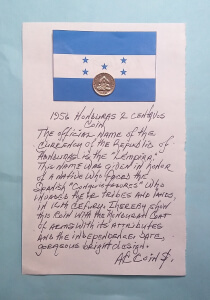 1956 HONDURAS 2 CENTAVOS
COIN
The official name of the
currency of the Republic of
Honduras is the "Lempira".
This name was given in honor
of a native who faced the
Spanish "Conquistadores" who
invaded their tribes and lands,
in Century. I hereby show
this coin with the Honduran Coat
of Arms with its attributes
and the Independence date,
gorgeous bright design.
AE COIN